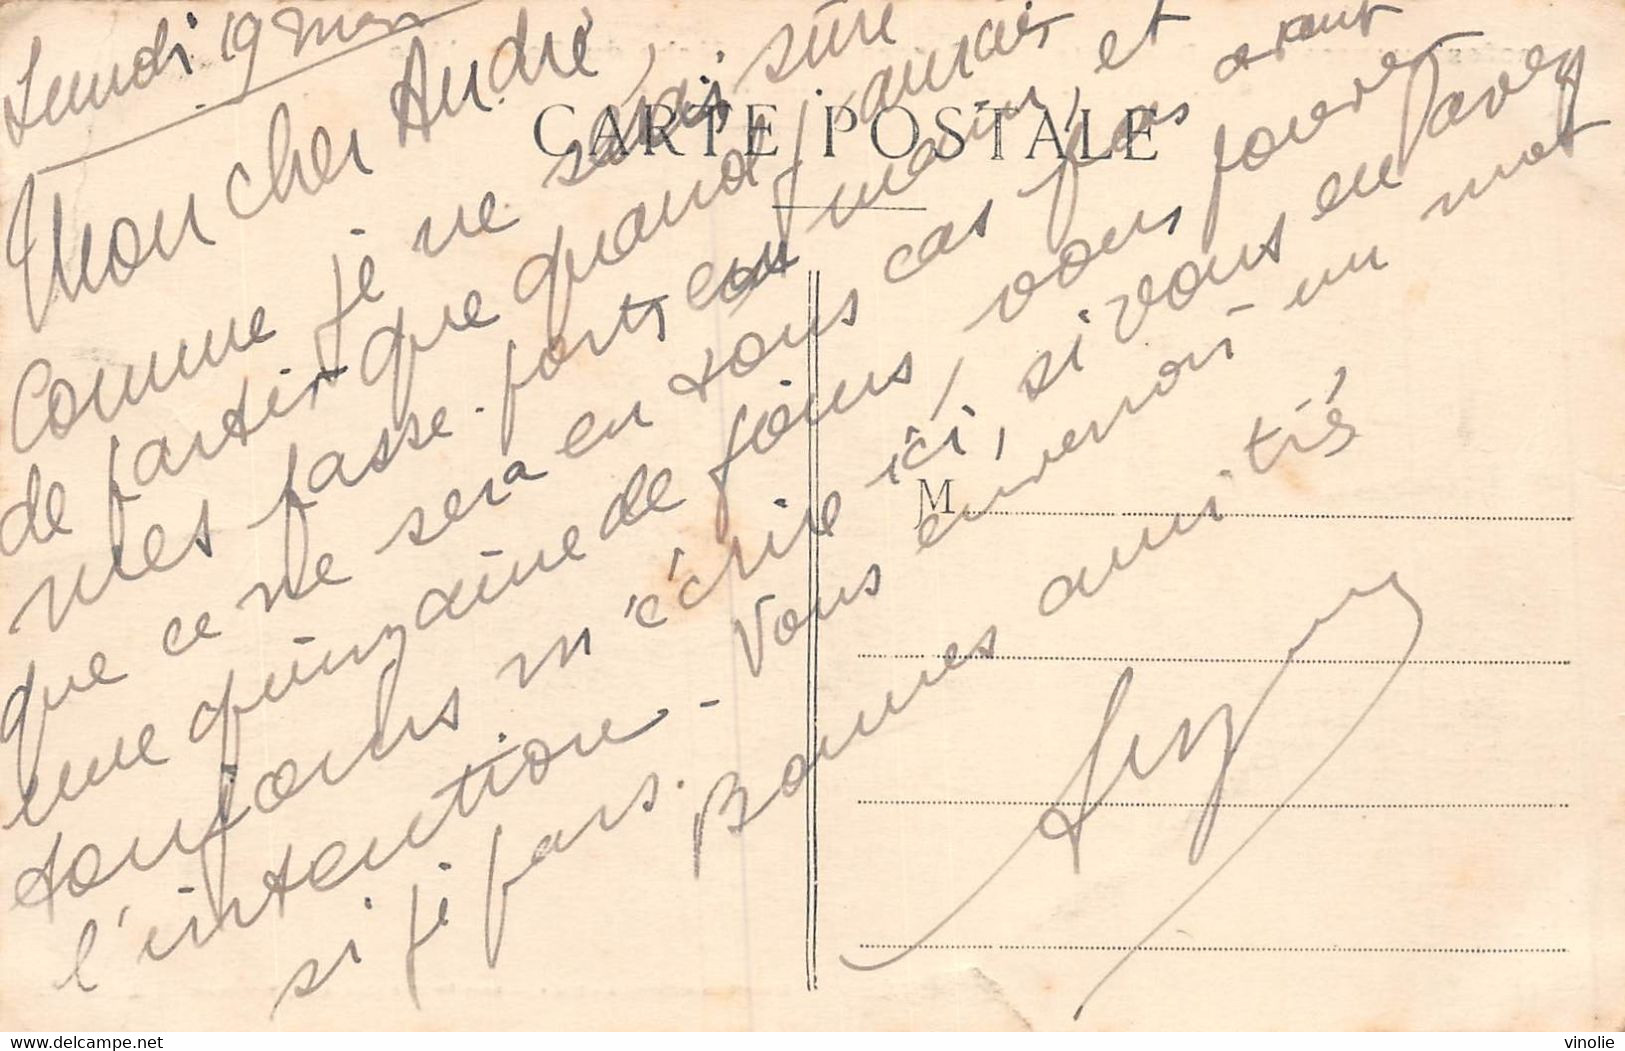 Lundi 19 mars
Mon cher André,
CARTE POSTALE
Comme je ne serai sûre
de partir que quand j'aurai
mes passe-ports en main, et
que ce ne sera en tous cas pas avant
une quinzaine de jours, vous pouvez
toujours m'écrire ici, si vous en avez
l'intention. - Vous enverrai un mot
si je pars.
Bonnes amitiés
M
vinolie
Delcampe.net